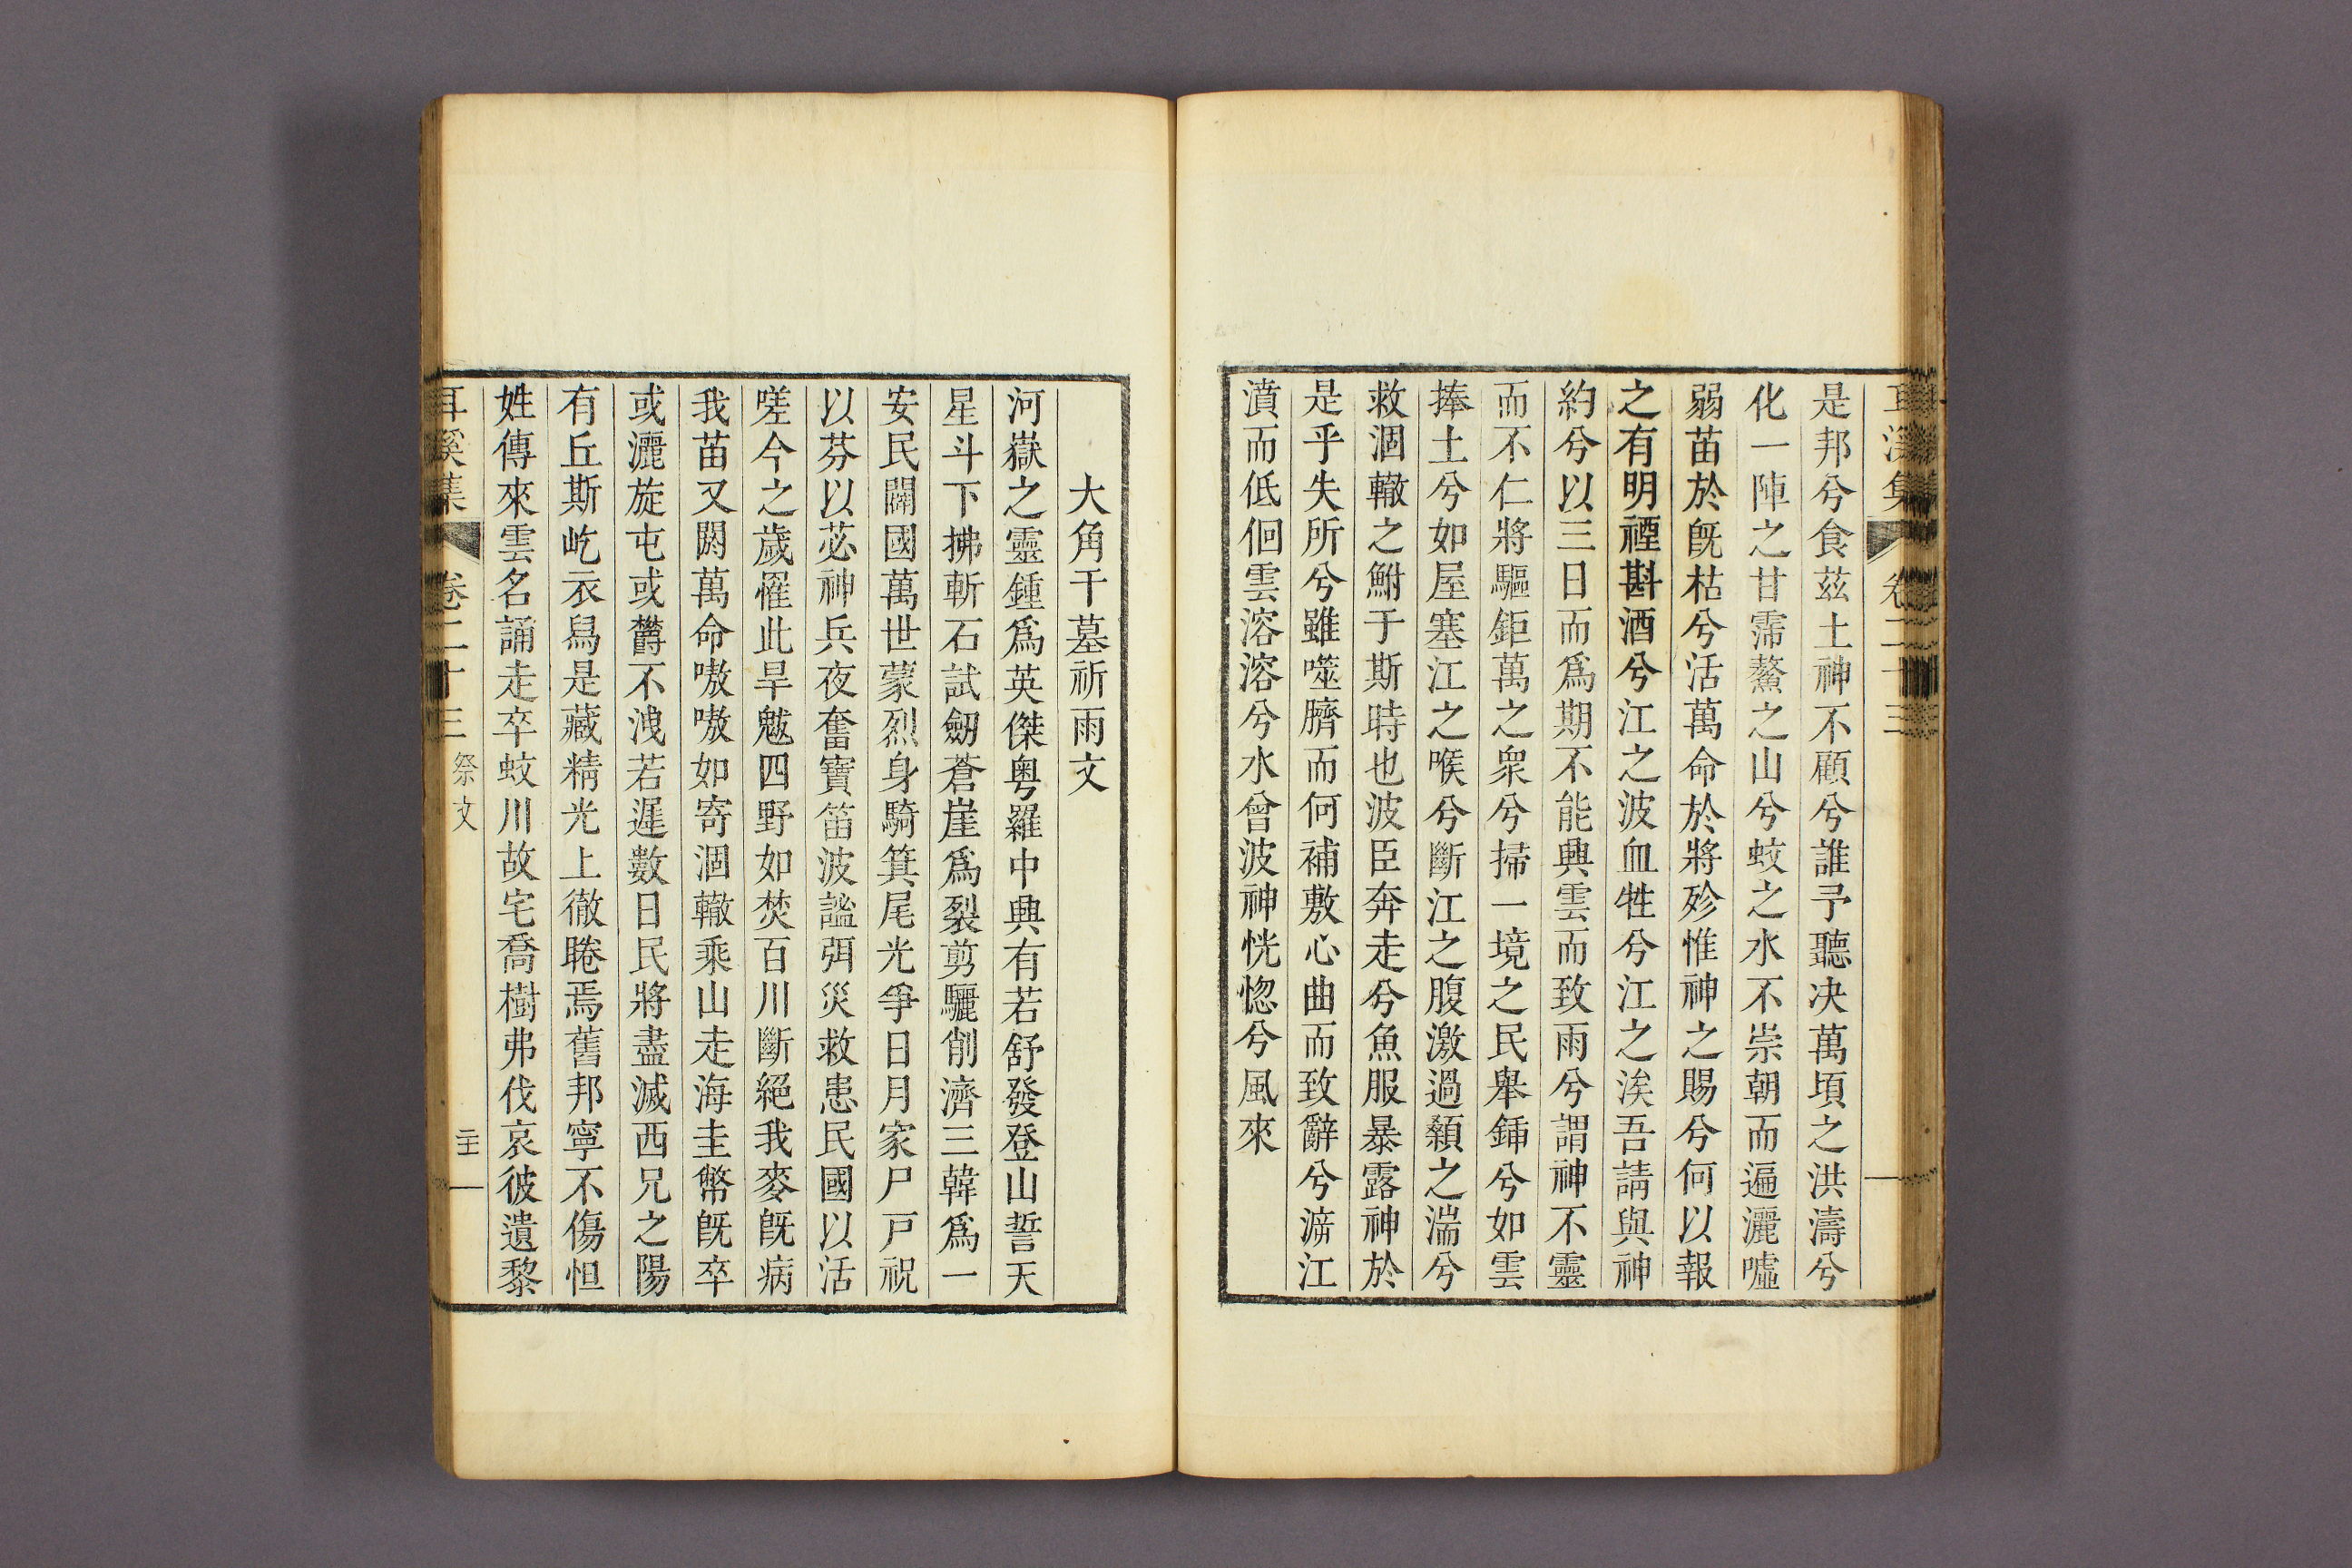 耳溪集 卷二十三
是邦兮食茲土神不顧兮誰予聽决萬頃之洪濤兮
化一陣之甘霈鰲之山兮蚊之水不崇朝而遍灑噓
弱苗於旣枯兮活萬命於將殄惟神之賜兮何以報
之有明禋斟酒兮江之波血牲兮江之涘吾請與神
約兮以三日而爲期不能興雲而致雨兮謂神不靈
而不仁將驅鉅萬之衆兮掃一境之民舉鍤兮如雲
捧土兮如屋塞江之喉兮斷江之腹激過顙之湍兮
救涸轍之鮒于斯時也波臣奔走兮魚服暴露神於
是乎失所兮雖噬臍而何補敷心曲而致辭兮㵗江
濆而低佪雲溶溶兮水曾波神恍惚兮風來
大角干墓祈雨文
河嶽之靈鍾爲英傑粤羅中興有若舒發登山誓天
星斗下拂斬石試劒蒼崖爲裂剪驪削濟三韓爲一
安民闢國萬世蒙烈身騎箕尾光爭日月家尸戸祝
以芬以苾神兵夜奮寶笛波謐弭災救患民國以活
嗟今之歲罹此旱魃四野如焚百川斷絕我麥旣病
我苗又閼萬命嗷嗷如寄涸轍乘山走海圭幣旣卒
或灑旋屯或欝不洩若遲數日民將盡滅西兄之陽
有丘斯屹衣舄是藏精光上徹睠焉舊邦寧不傷怛
姓傳來雲名誦走卒蚊川故宅喬樹弗伐哀彼遺黎
耳溪集 卷二十三 祭文 二十一